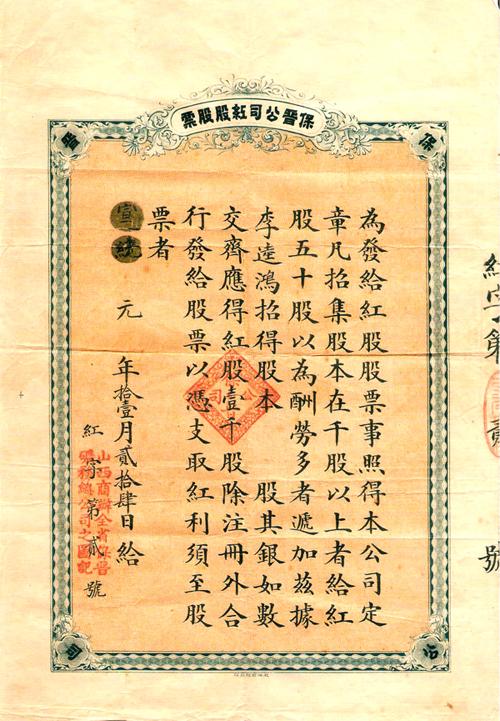 保晉公司紅股股票
保
晉
公
司
為發給紅股股票事照得本公司定
章凡招集股本在千股以上者給紅
股五十股以為酬勞多者遞加茲據
李逺鴻招得股本 股其銀如數
交齊應得紅股壹千股除注冊外合
行發給股票以憑支取紅利須至股
票者
宣統元年拾壹月貳拾肆日給
紅字第貳號
山西商辦全省保晉
礦務總公司之圖記